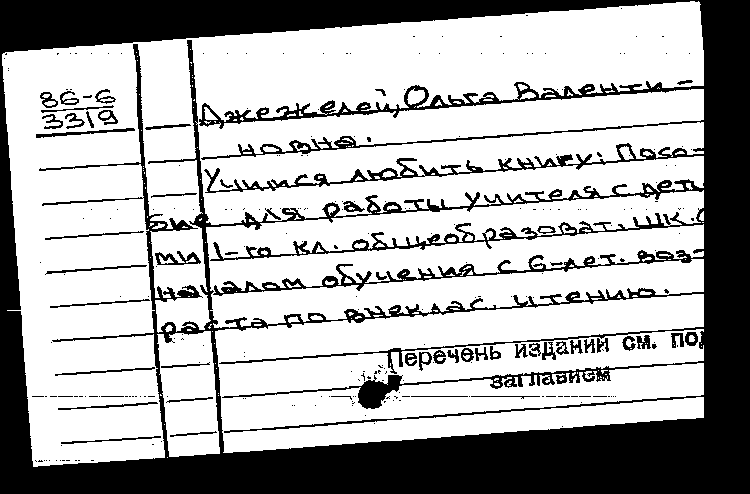 86-6
3319
Джежелей, Ольга Валенти-
новна.
Учимся любить книгу: Посо-
бие для работы учителя с деть
ми 1-го кл. общеобразоват. шк. с
началом обучения с 6-лет. воз-
раста по внеклас. чтению.
Перечень изданий см. под
заглавием